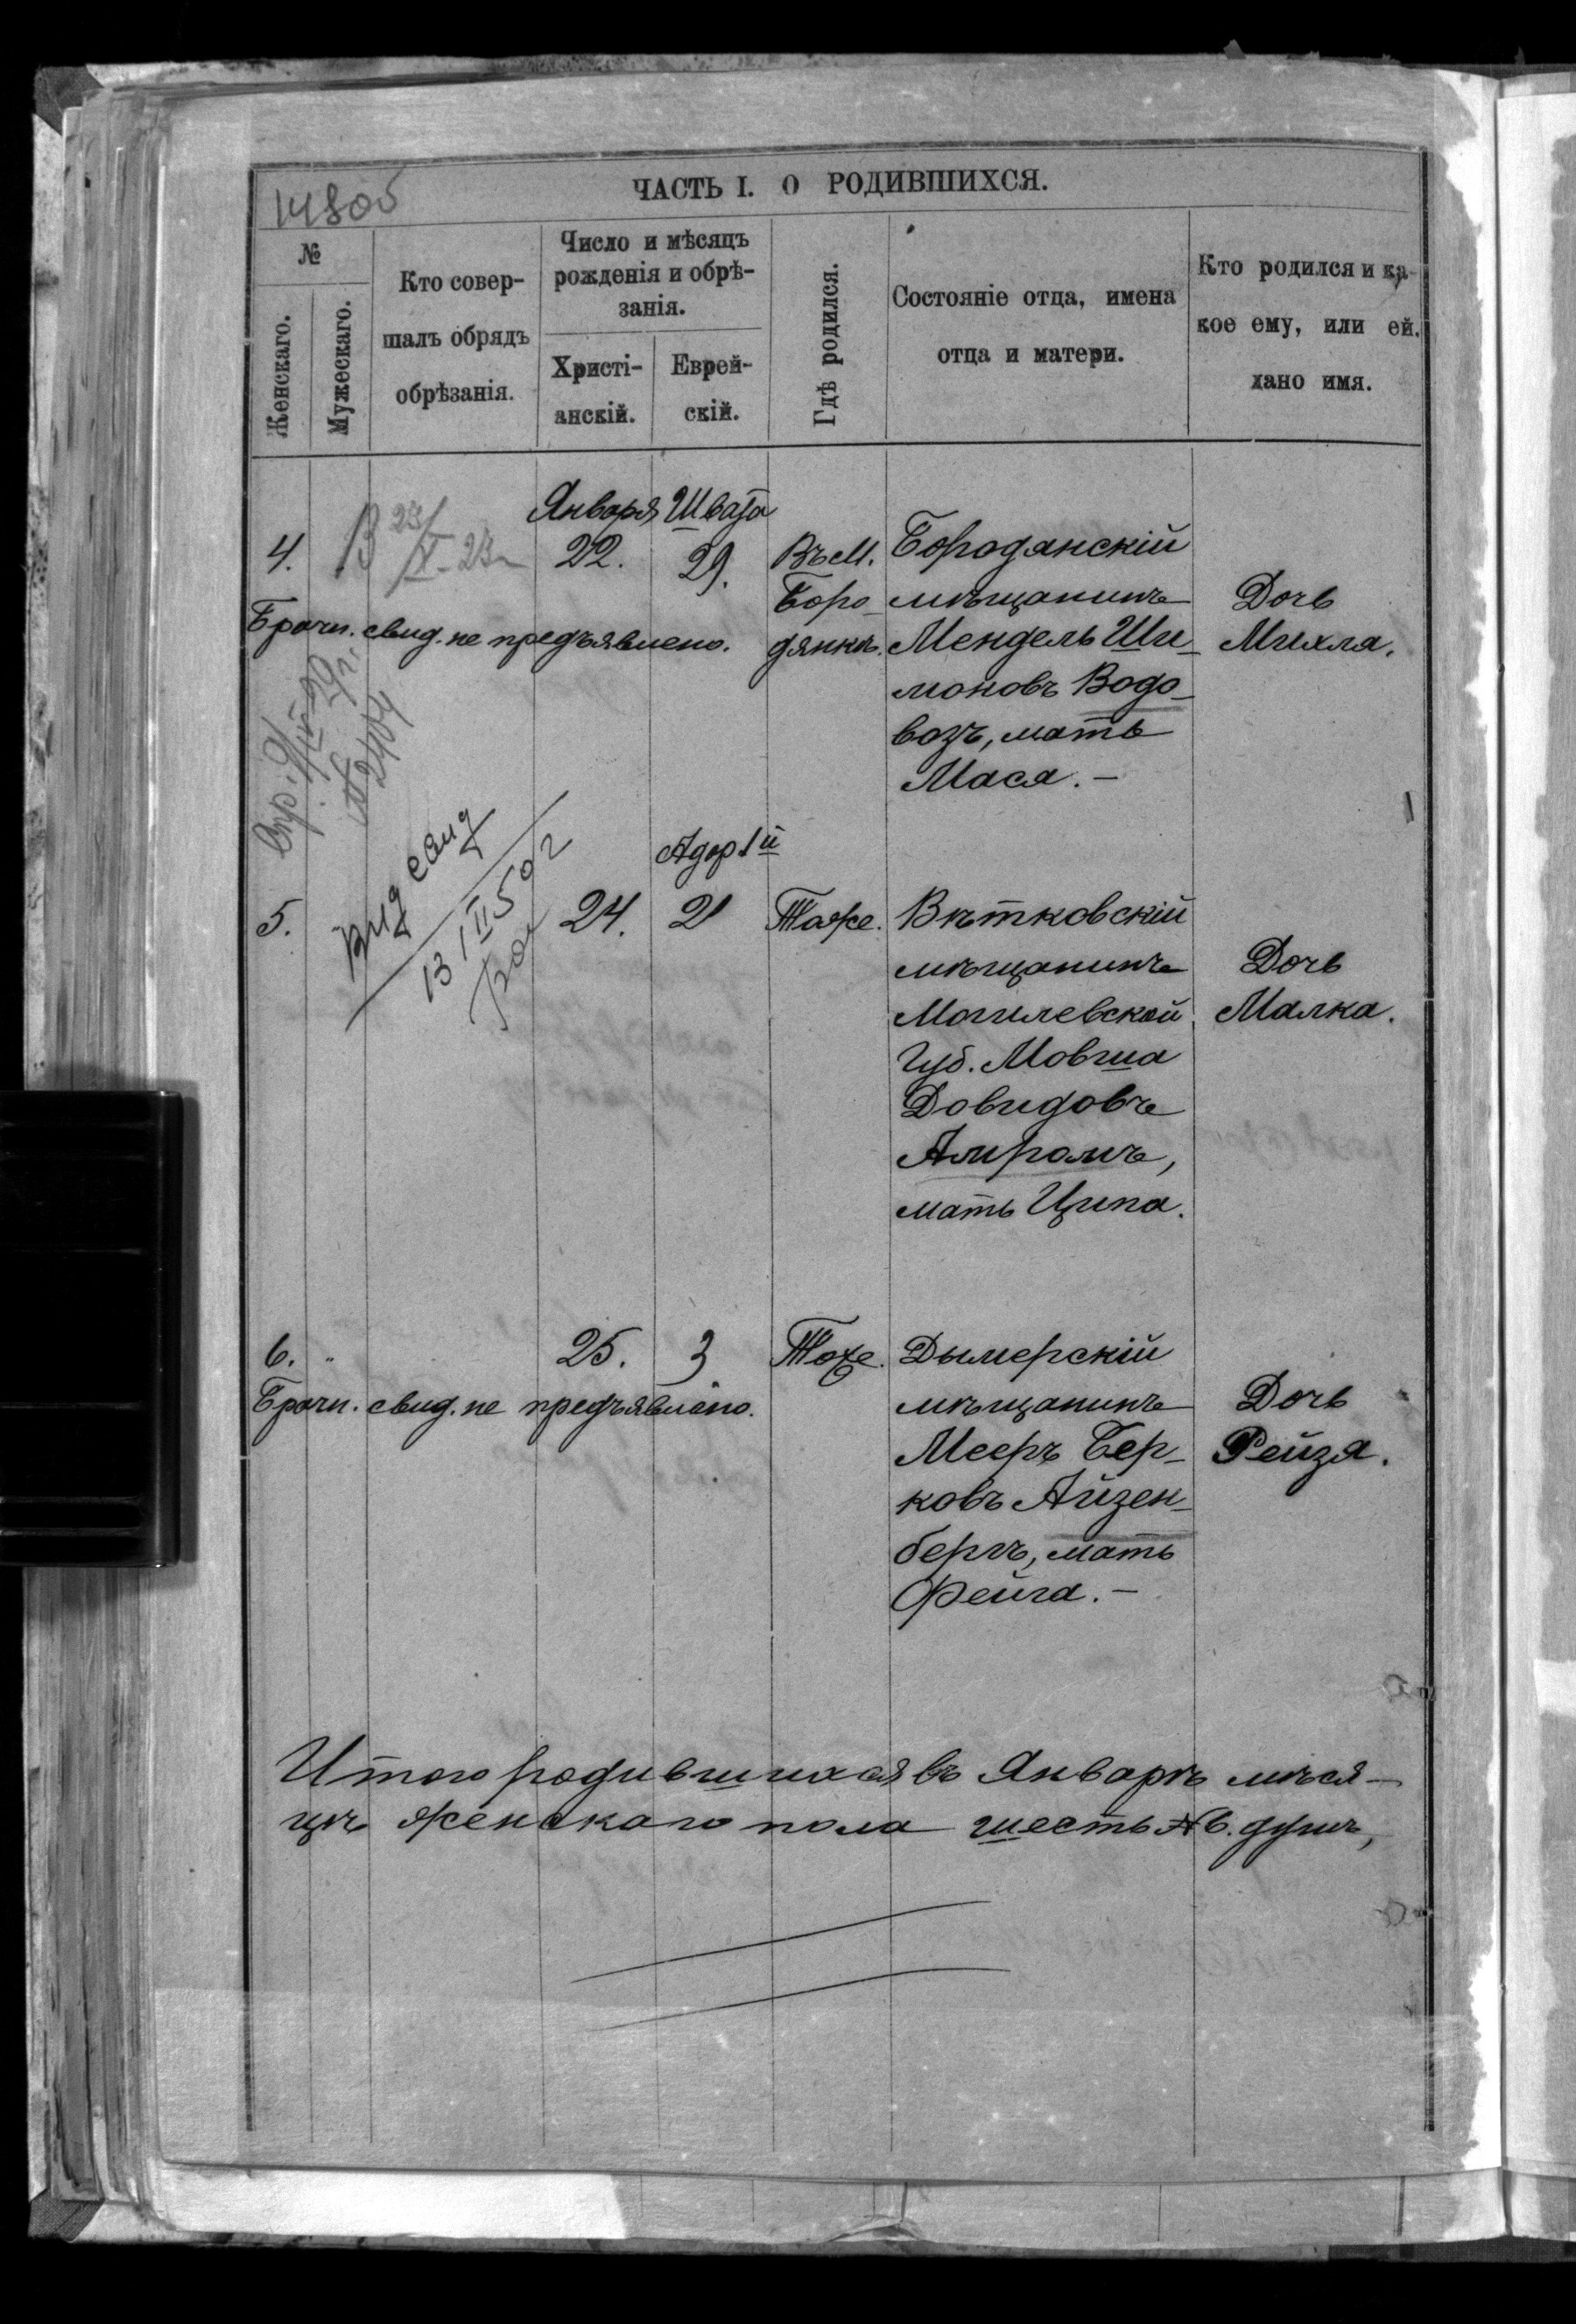 14805
ЧАСТЬ I. О РОДИВШИХСЯ.
№
Женскаго.
Мужескаго.
Кто совер-
шалъ обрядъ
обрѣзанія.
Число и мѣсяцъ
рожденія и обрѣ-
занія.
Христі-
анскій.
Еврей-
скій.
Гдѣ родился.
Состояніе отца, имена
отца и матери.
Кто родился и ка-
кое ему, или ей.
дано имя.
Января Швата
4.
В 23/X-23г
22.
29.
Въ М.
Боро-
дянкѣ.
Бородянскій
мѣщанинъ
Мендель Ши-
моновъ Водо-
возъ, мать
Мася. —
Дочь
Михля.
Брачн. свид. не предъявлено.
№ 2404
Адар 1й
5.
Выд свид
13/II 50 г
24.
2
Тоже.
Вѣтковскій
мѣщанинъ
Могилевской
Губ. Мовша
Довидовъ
Амромъ,
мать Ципа.
Дочь
Малка.
6. "
25.
3
Тоже.
Дымерскій
мѣщанинъ
Мееръ Бер-
ковъ Айзен-
бергъ, мать
Фейга. —
Дочь
Рейзя.
Брачн. свид. не предъявлено.
Итого родившихся въ Январѣ мѣся-
цѣ женскаго пола шесть № 6. душъ,